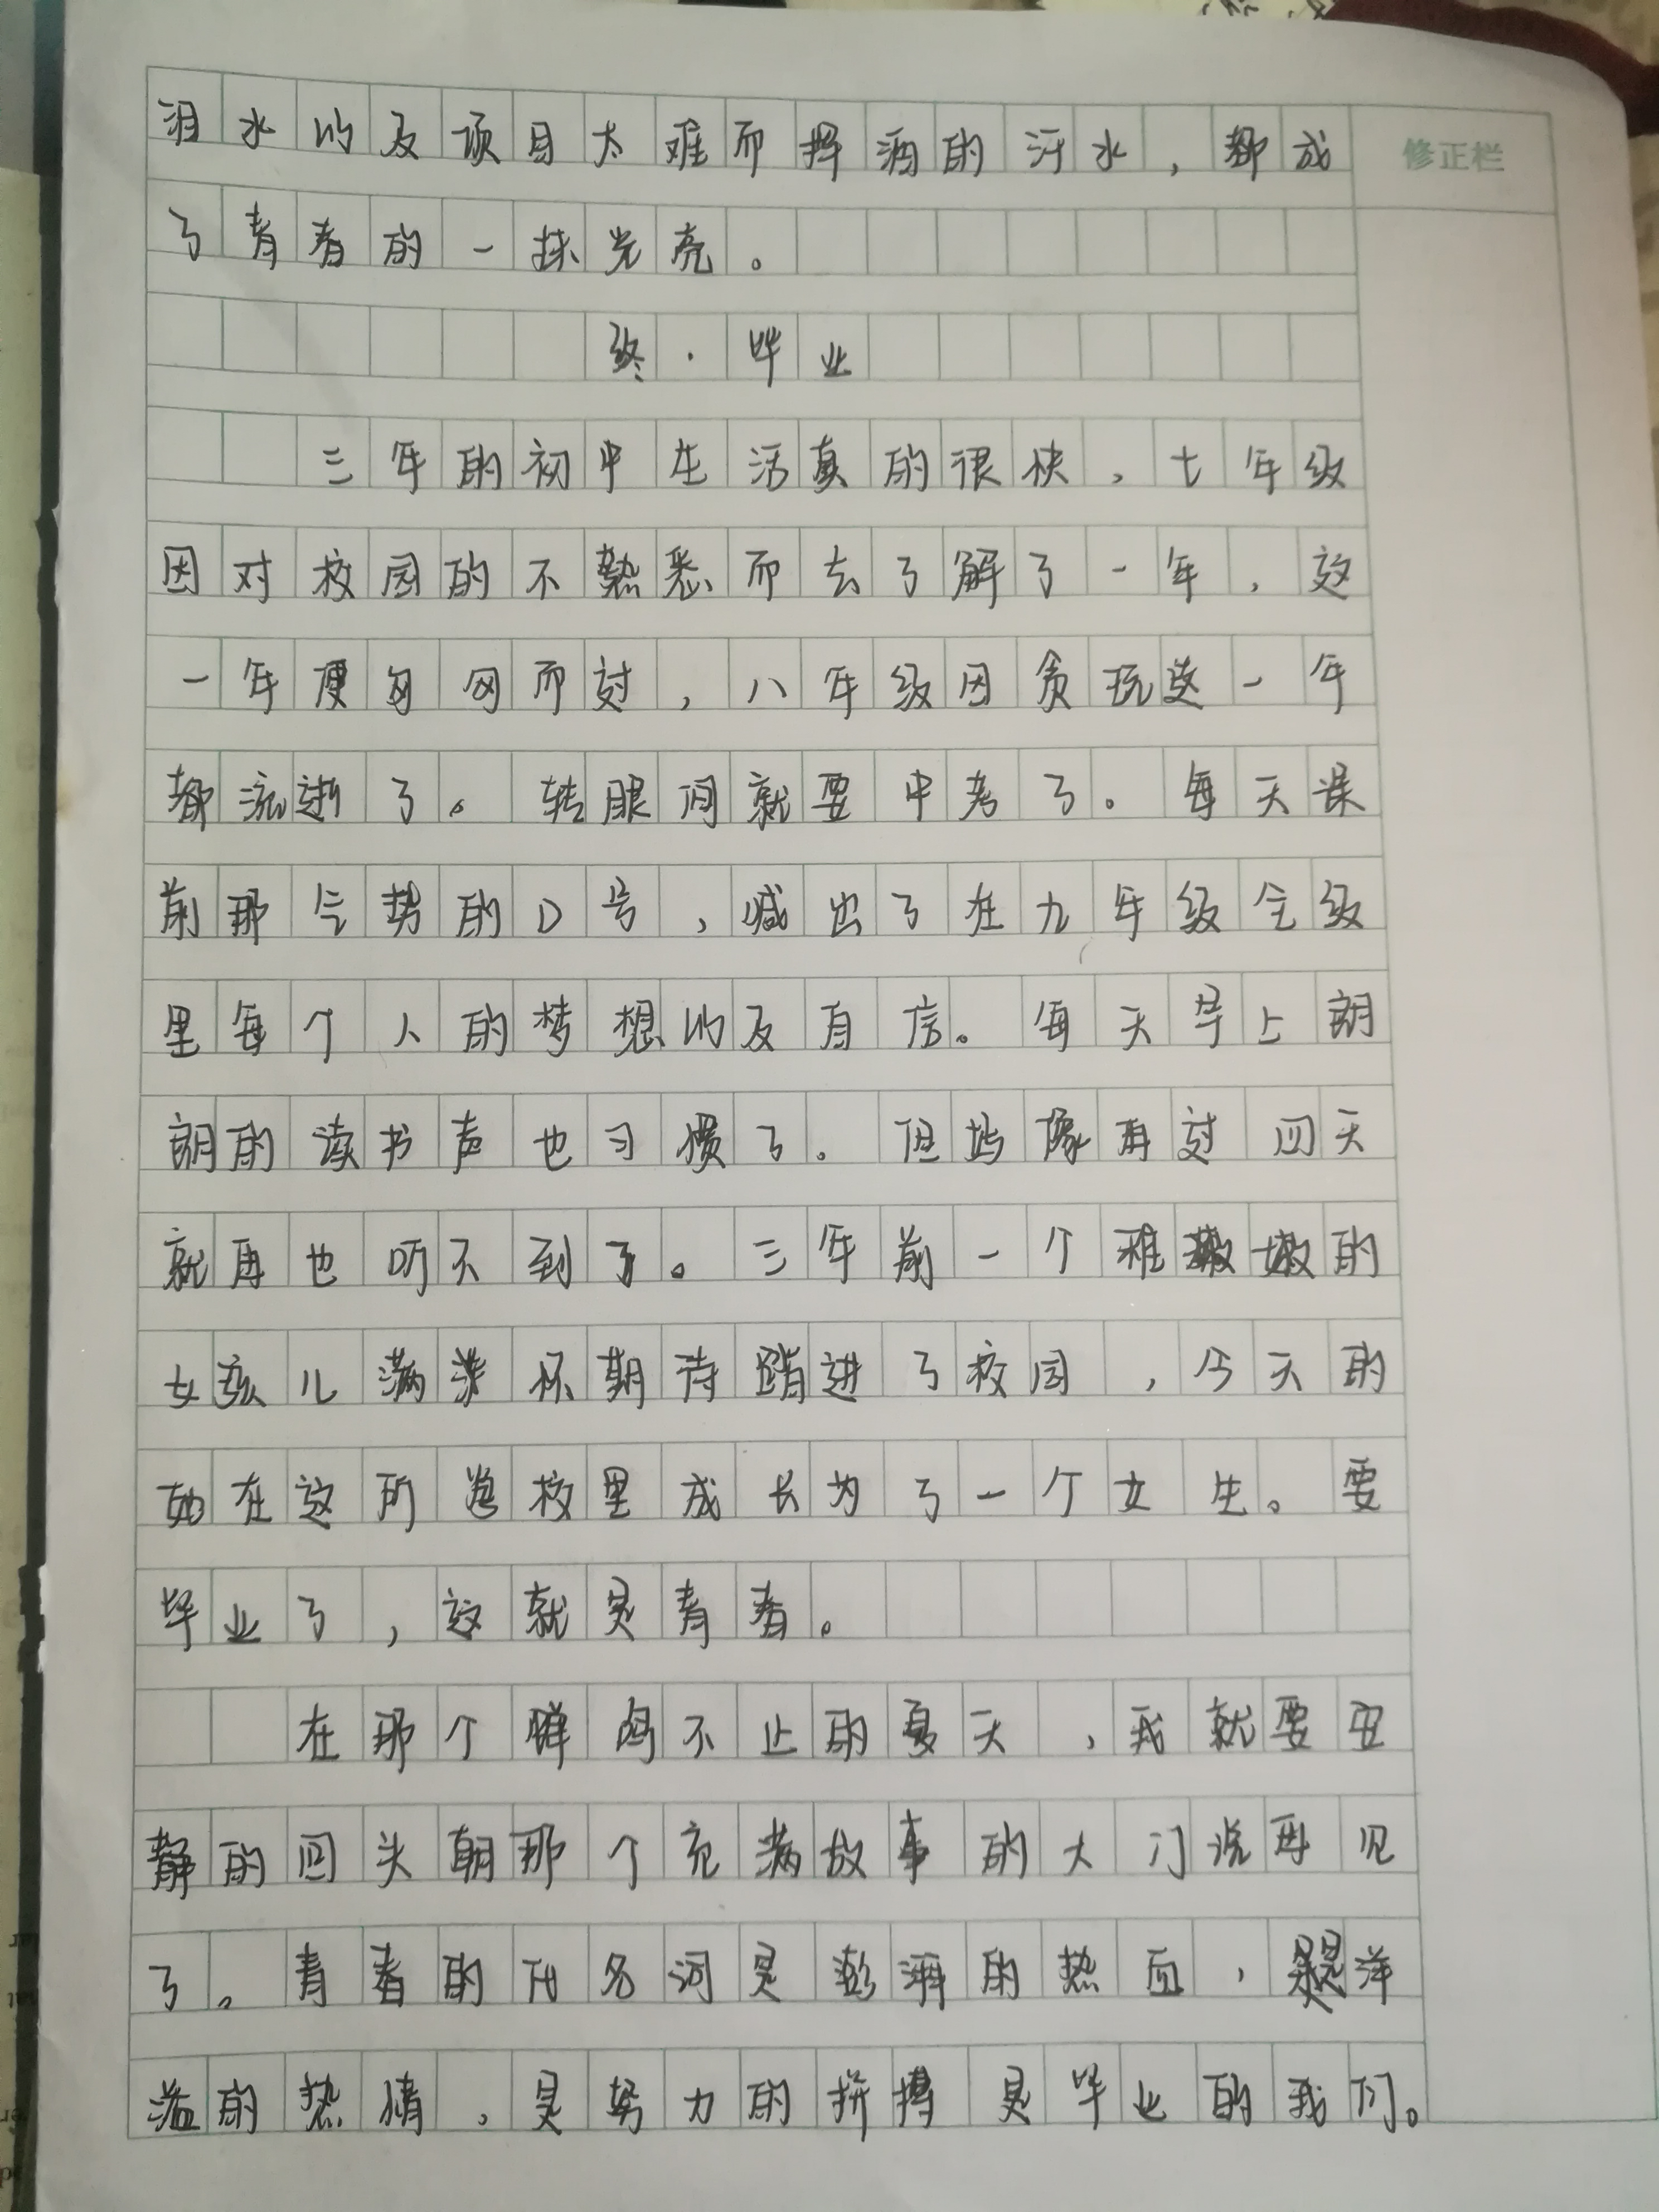 泪水以及项目太难而挥洒的汗水，都成
修正栏
了青春的一抹光亮。
终·毕业
三年的初中生活真的很快，七年级
因对校园的不熟悉而去了解了一年，这
一年便匆匆而过，八年级因贪玩这一年
都流逝了。转眼间就要中考了。每天课
前那气势的口号，喊出了在九年级全级
里每个人的梦想以及自信。每天早上朗
朗的读书声也习惯了。但好像再过四天
就再也听不到了。三年前一个稚嫩的
女孩儿满怀期待踏进了校园，今天的
她在这所学校里成长为了一个女生。要
毕业了，这就是青春。
在那个蝉鸣不止的夏天，我就要安
静的回头朝那个充满故事的大门说再见
了。青春的代名词是澎湃的热血，是洋
溢的热情，是努力的拼搏是毕业的我们。